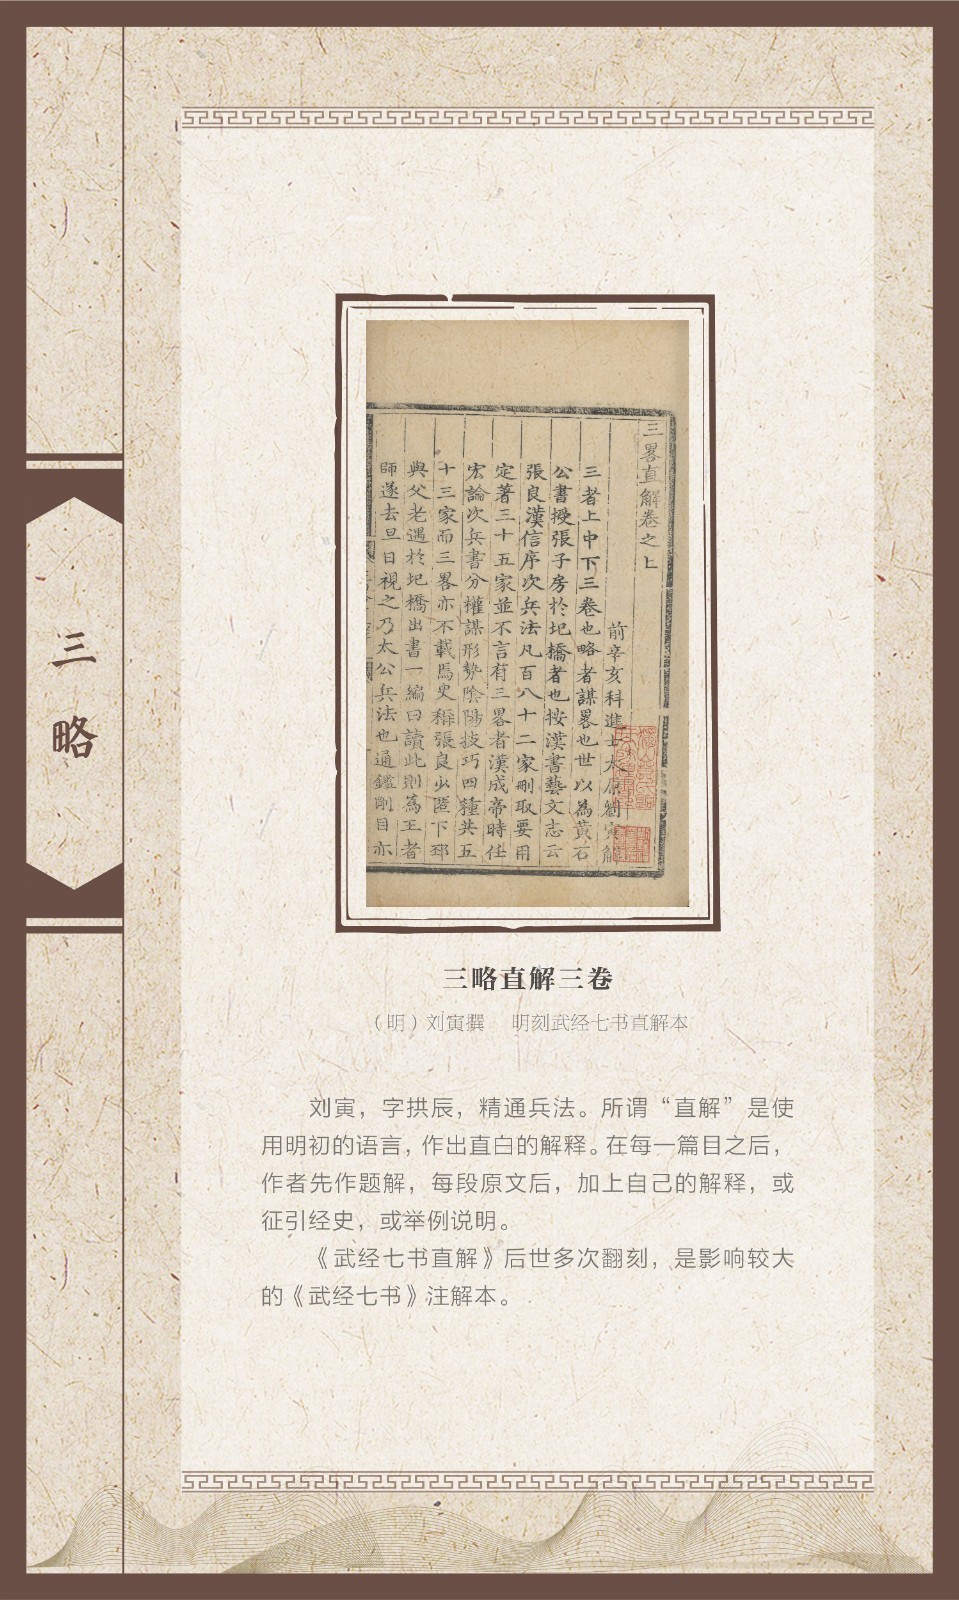 三略
三畧直解卷之上
前辛亥科進士太原劉寅解
三者上中下三卷也略者謀畧也世以為黃石
公書授張子房於圯橋者也按漢書藝文志云
張良漢信序次兵法凡百八十二家刪取要用
定著三十五家並不言有三畧者漢成帝時任
宏論次兵書分權謀形勢陰陽技巧四種共五
十三家而三畧亦不載馬史稱張良少匿下邳
與父老遇於圯橋出書一編曰讀此則為王者
師遂去旦日視之乃太公兵法也通鑑剛目亦
三略直解三卷
（明）刘寅撰 明刻武经七书直解本
刘寅，字拱辰，精通兵法。所谓“直解”是使
用明初的语言，作出直白的解释。在每一篇目之后，
作者先作题解，每段原文后，加上自己的解释，或
征引经史，或举例说明。
《武经七书直解》后世多次翻刻，是影响较大
的《武经七书》注解本。